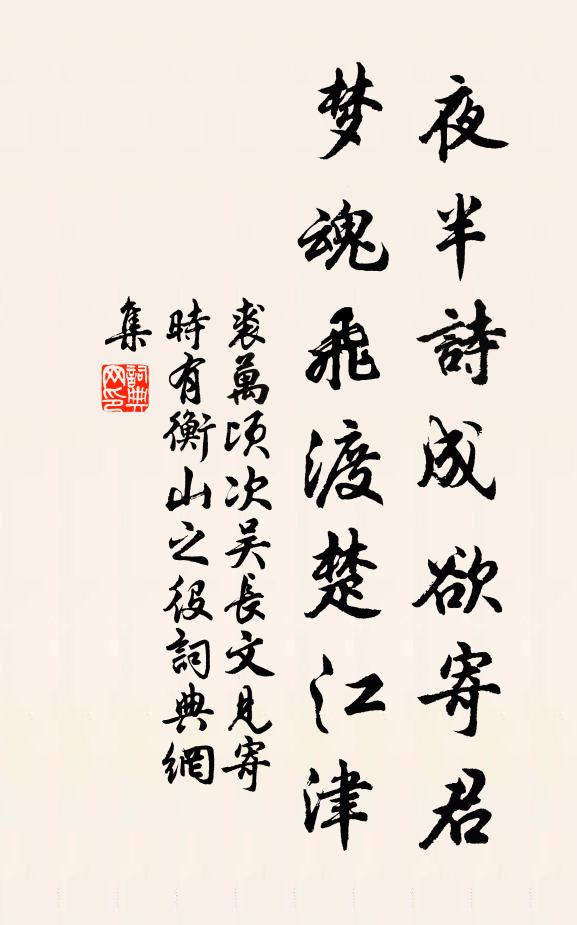 夜半詩成欲寄君
梦魂飛渡楚江津
裘萬頃次吴長文見寄
時有衡山之役詞典網
集
詞典
网印